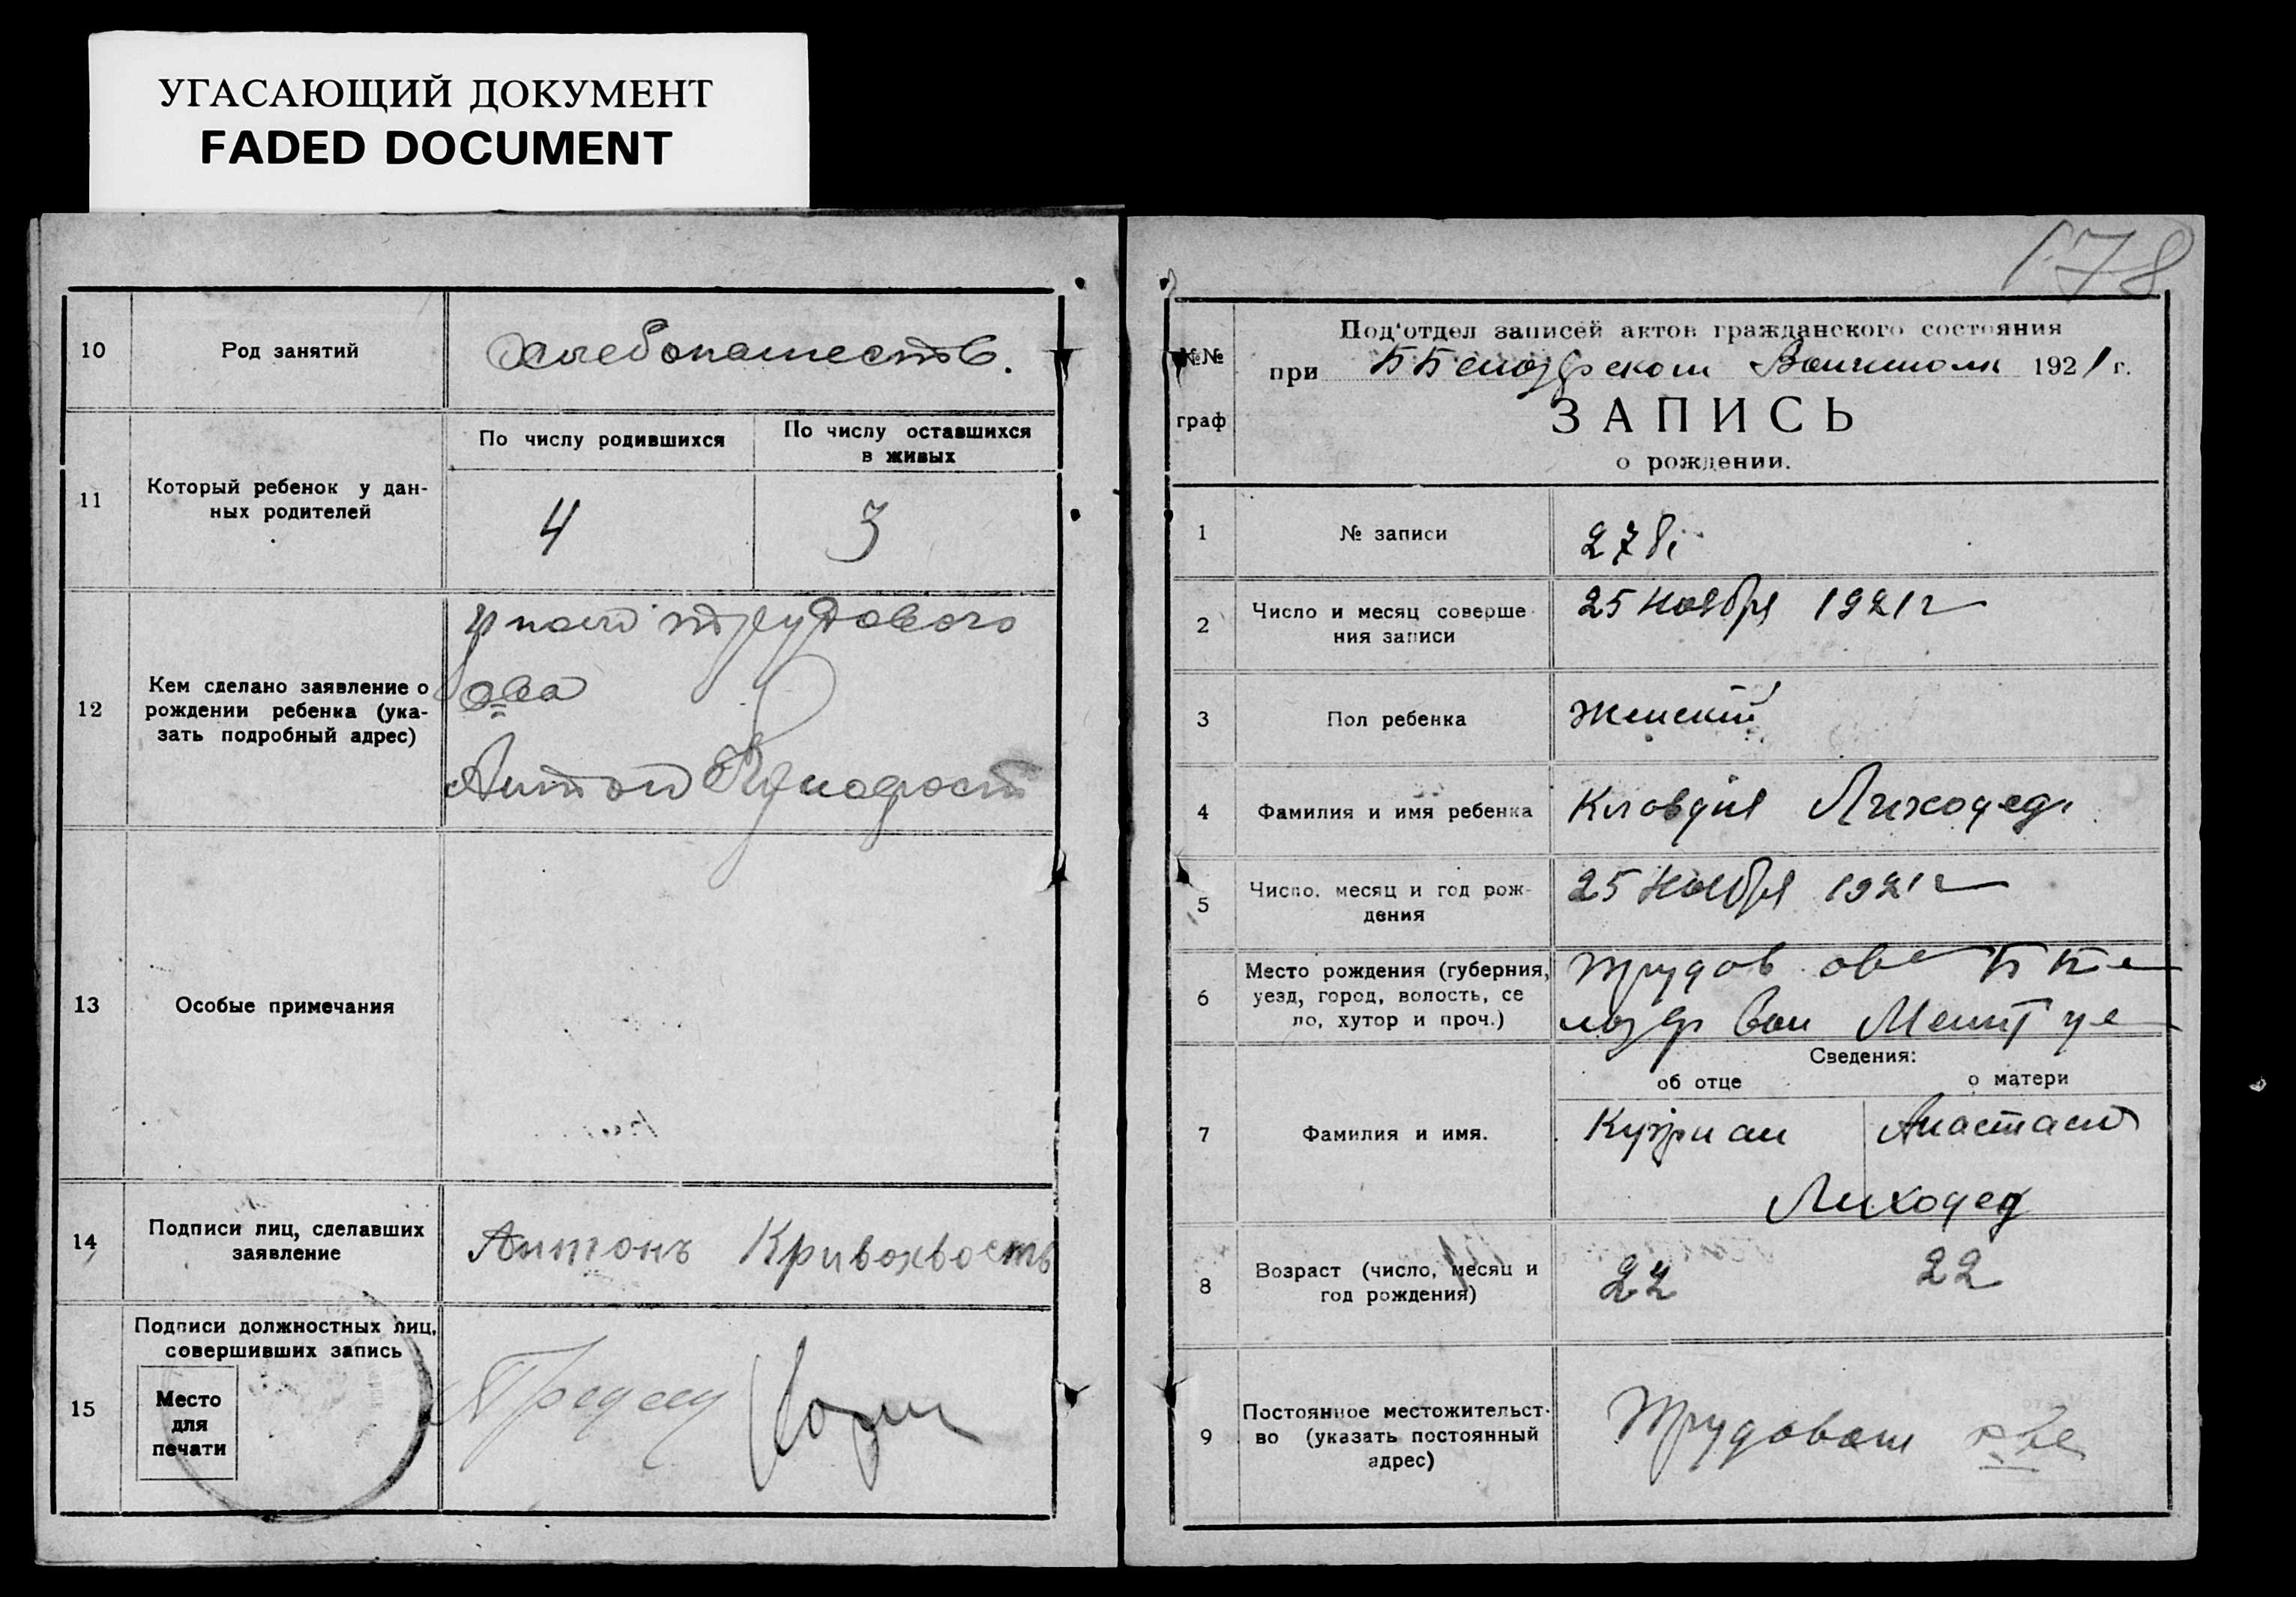 УГАСАЮЩИЙ ДОКУМЕНТ
FADED DOCUMENT
10
Род занятий
хлебопашеств.
11
Который ребенок у дан-
ных родителей
По числу родившихся
По числу оставшихся
в живых
4
3
12
Кем сделано заявление о
рождении ребенка (ука-
зать подробный адрес)
трудового
ова
Антон
13
Особые примечания
14
Подписи лиц, сделавших
заявление
Антонъ Кривохвость
15
Подписи должностных лиц,
совершивших запись
Место
для
печати
178
№№
граф
Под'отдел записей актов гражданского состояния
при 1921 г.
ЗАПИСЬ
о рождении.
1
№ записи
278
2
Число и месяц соверше
ния записи
25 ноября 1921 г
3
Пол ребенка
Женский
4
Фамилия и имя ребенка
Кловдия Лиходед
5
Число, месяц и год рож-
дения
25 ноября 1921 г
6
Место рождения (губерния,
уезд, город, волость, се
ло, хутор и проч.)
Трудов ове
Вол Мелит уе
Сведения:
об отце
о матери
7
Фамилия и имя.
Куприан
Анастасия
Лиходед
8
Возраст (число, месяц и
год рождения)
22
22
9
Постоянное местожительст-
во (указать постоянный
адрес)
Трудовом ове